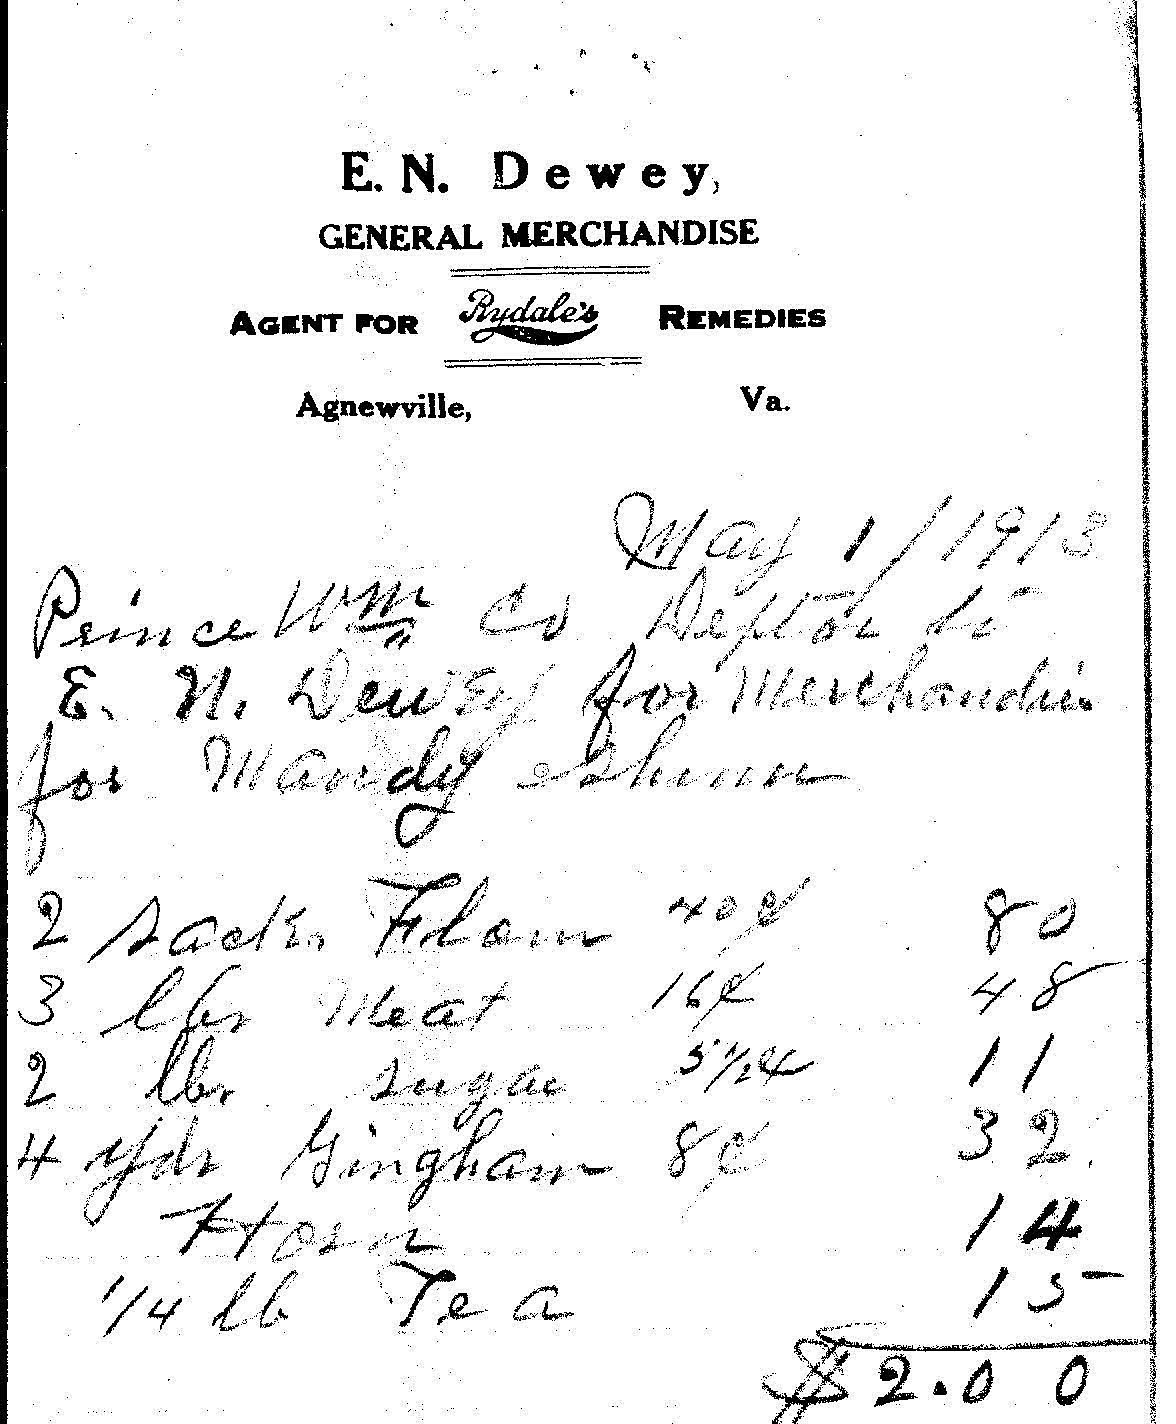 E. N. Dewey,
GENERAL MERCHANDISE
AGENT FOR Rydale's REMEDIES
Agnewville, Va.
May 1/1913
Prince Wm Co to
E. N. Dewey for Merchandise
for Mandy
2 Sack Flour 40¢ 80
3 lbs Meat 16¢ 48
2 lbs Sugar 5 1/2¢ 11
4 yds Gingham 8¢ 32
14
1/4 lb Tea 15
$2.00